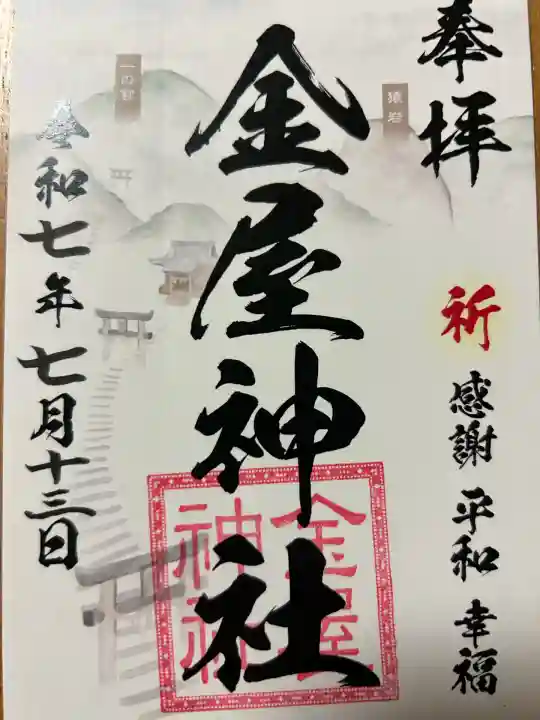 奉拝
祈 感謝 平和 幸福
猿岩
金屋神社
金屋神社
令和七年七月十三日